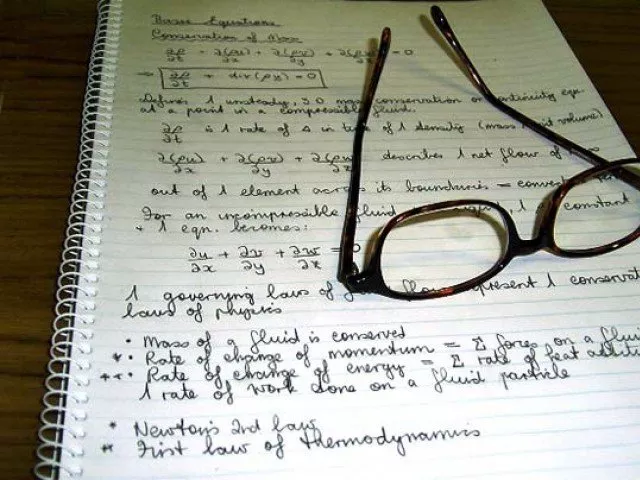 Basic Equations
Conservation of Mass
∂ρ/∂t + ∂(ρu)/∂x + ∂(ρv)/∂y + ∂(ρw)/∂z = 0
⇒ ∂ρ/∂t + div(ρu) = 0
Defines 1 unsteady, 3D mass conservation or continuity eqn.
at a point in a compressible fluid.
∂ρ/∂t is 1 rate of Δ in time of 1 density (mass volume)
∂(ρu)/∂x + ∂(ρv)/∂y + ∂(ρw describes 1 net flow of
out of 1 element across its boundaries =
For an incompressible fluid 1 constant
+ 1 eqn. becomes:
∂u/∂x + ∂v/∂y + ∂w/∂z = 0
1 governing laws of 1 conserva
laws of physics
• Mass of a fluid is conserved
* • Rate of change of momentum = Σ forces on a flui
** • Rate of change of energy = Σ rate of heat additi
1 rate of work done on a fluid particle
* Newton's 2nd law
** First law of thermodynamics